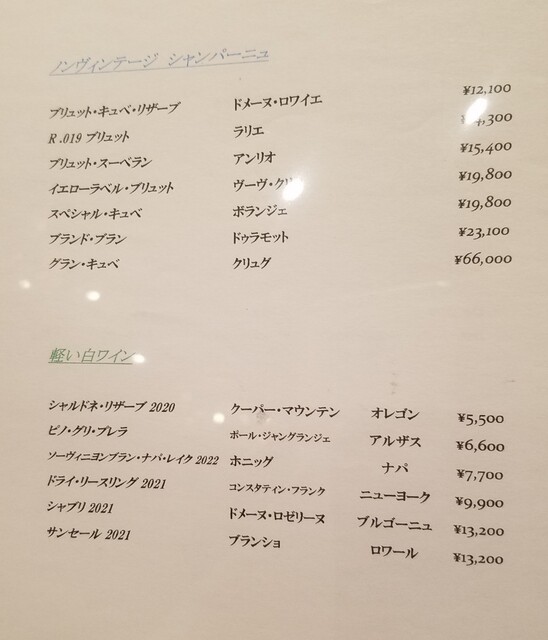 ノンヴィンテージ シャンパーニュ
ブリュット・キュベ・リザーブ ドメーヌ・ロワイエ ¥12,100
R.019 ブリュット ラリエ 4,300
ブリュット・スーベラン アンリオ ¥15,400
イエローラベル・ブリュット ヴーヴ・クリ ¥19,800
スペシャル・キュベ ボランジェ ¥19,800
ブランド・ブラン ドゥラモット ¥23,100
グラン・キュベ クリュグ ¥66,000
軽い白ワイン
シャルドネ・リザーブ 2020 クーパー・マウンテン オレゴン ¥5,500
ピノ・グリ・プレラ ポール・ジャングランジェ アルザス ¥6,600
ソーヴィニヨンブラン・ナパ・レイク 2022 ホニッグ ナパ ¥7,700
ドライ・リースリング 2021 コンスタティン・フランク ニューヨーク ¥9,900
シャブリ 2021 ドメーヌ・ロゼリーヌ ブルゴーニュ ¥13,200
サンセール 2021 ブランショ ロワール ¥13,200